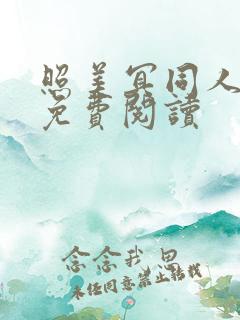 照美冥同人
免費閱讀
念念我思
未经同意禁止转载